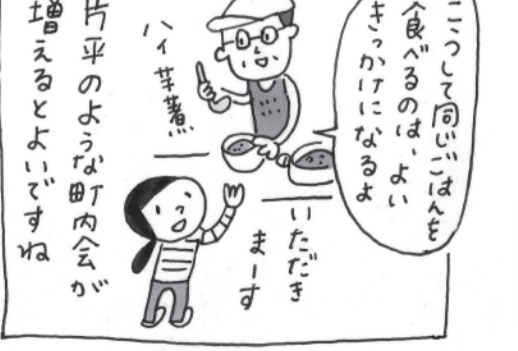 こうして同じごはんを
食べるのは、よい
きっかけになるよ
ハイ芋煮
いただき
まーす
片平のような町内会が
増えるとよいですね